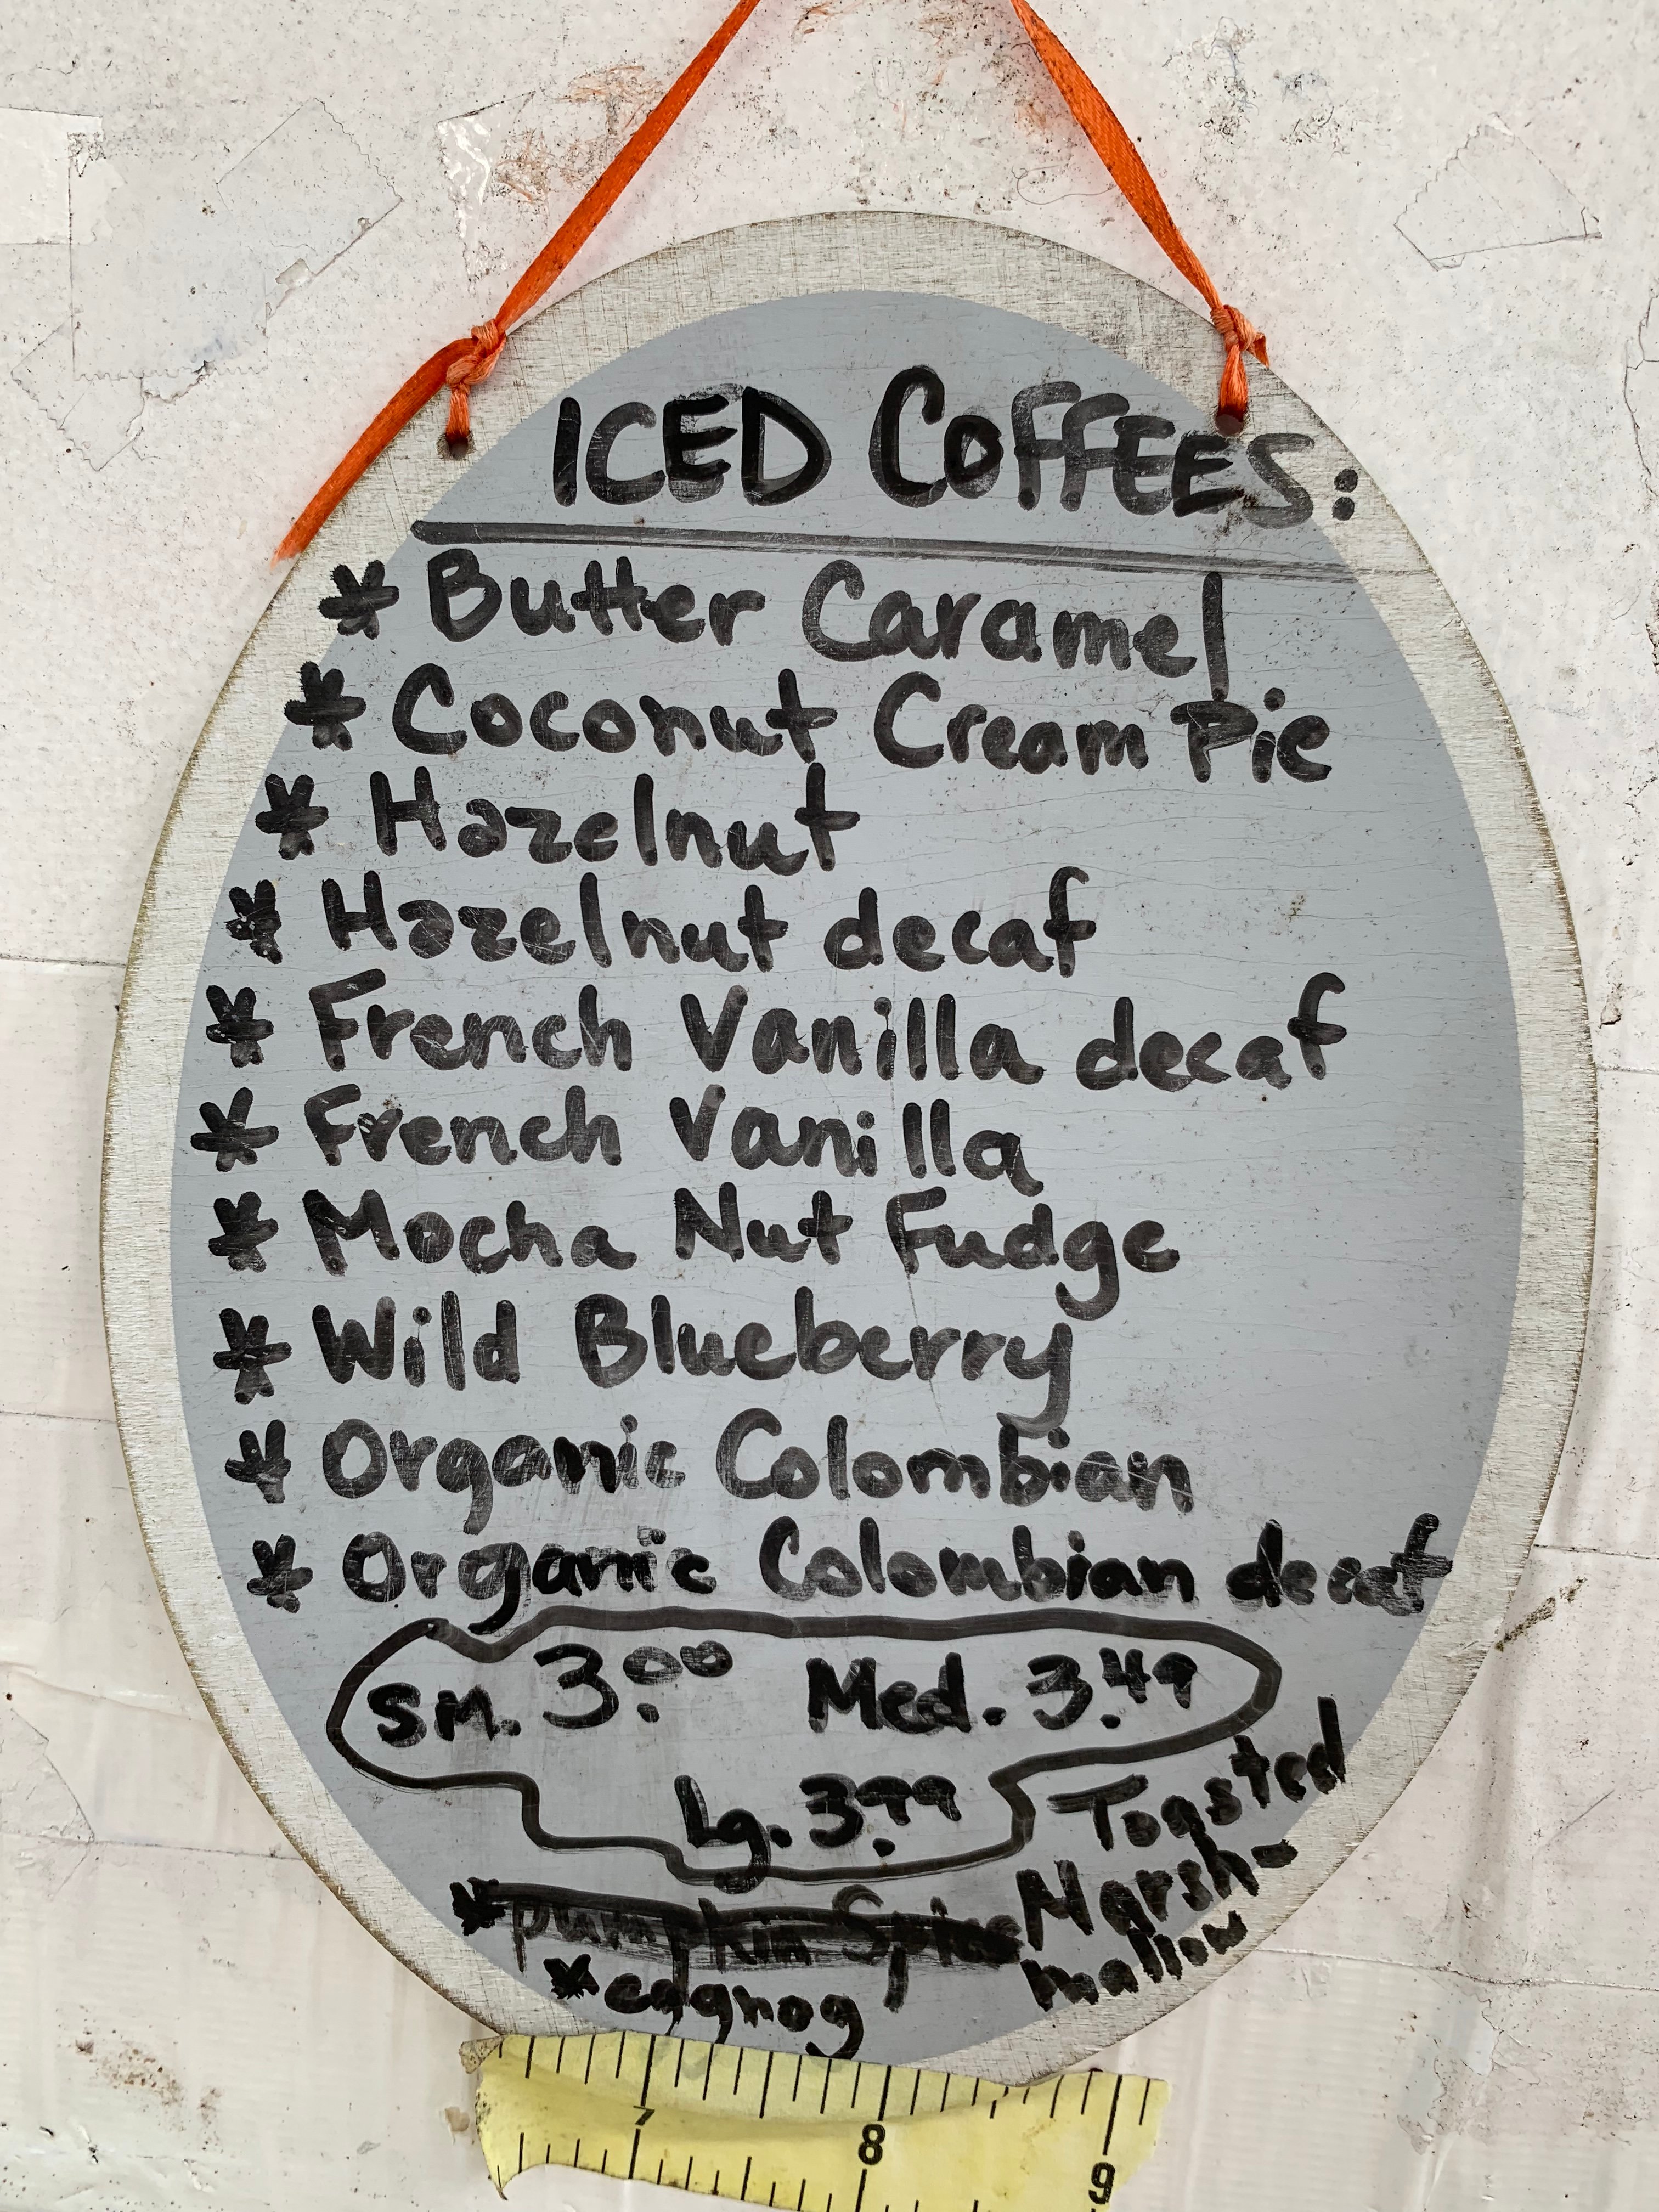 ICED COFFEES:
* Butter Caramel
* Coconut Cream Pie
* Hazelnut
* Hazelnut decaf
* French Vanilla decaf
* French Vanilla
* Mocha Nut Fudge
* Wild Blueberry
* Organic Colombian
* Organic Colombian decaf
Sm. 3.00 Med. 3.49
Lg. 3.99
Toasted
Marsh-
mallow
* pumpkin Spice
* eggnog
7 8 9